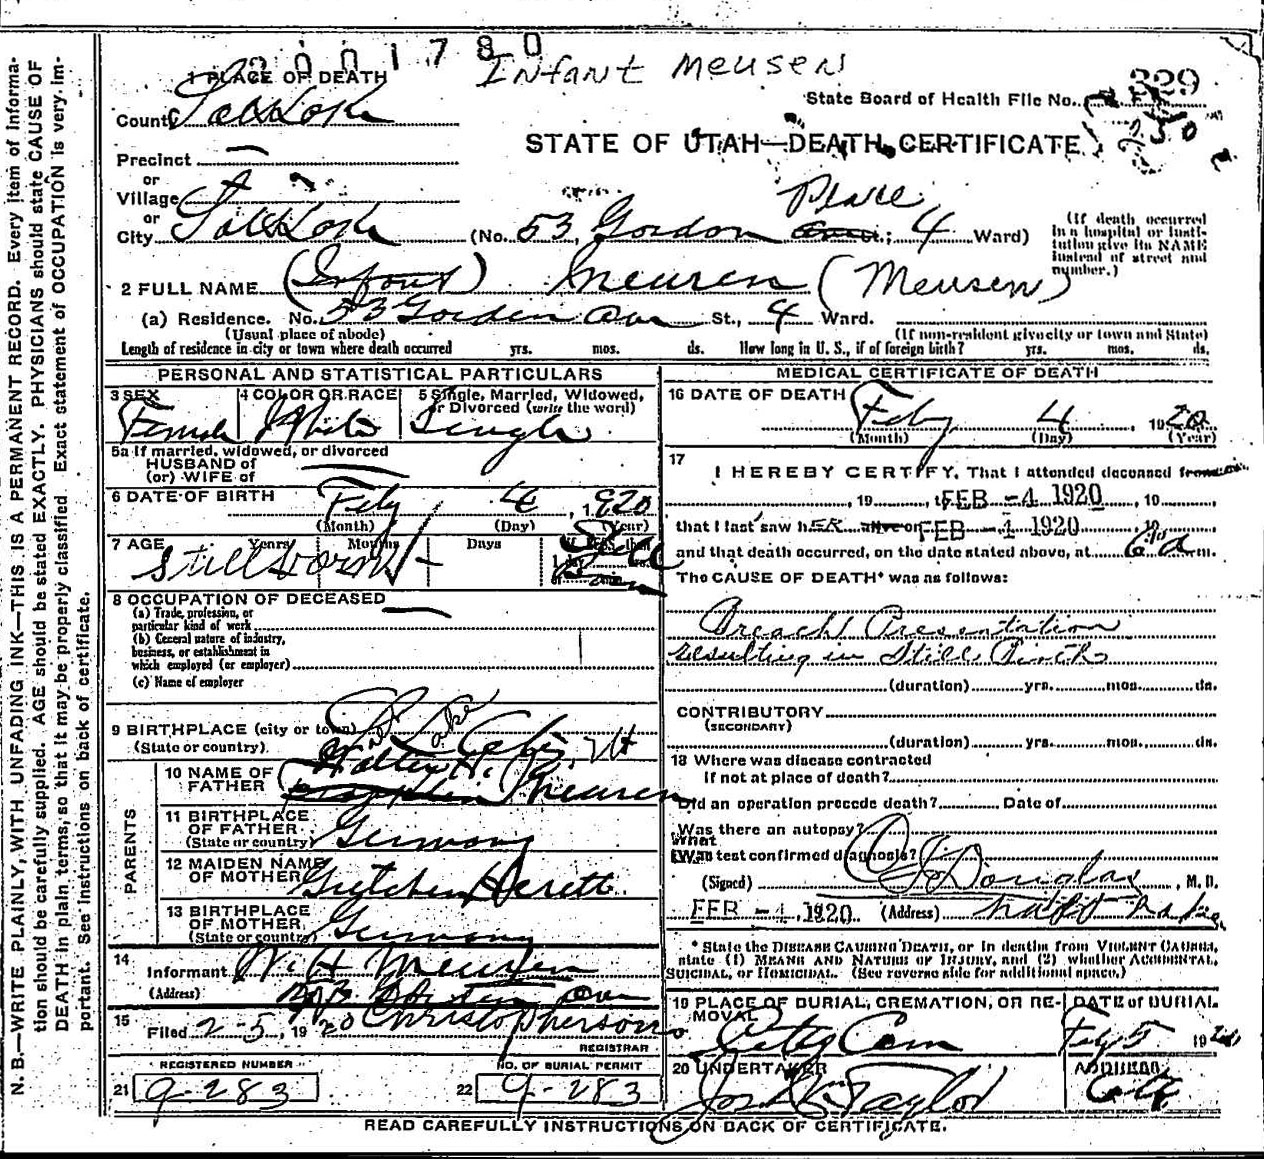 2001780
Infant Meusen
1 PLACE OF DEATH
329
State Board of Health File No.
County Salt Lake
STATE OF UTAH—DEATH CERTIFICATE
Precinct —
or
Village
or
Place
City Salt Lake (No. 53, Gordon Ave St.; 4 Ward)
(If death occurred in a hospital or institution give its NAME instead of street and number.)
2 FULL NAME (Infant) Meuren (Meusen)
(a) Residence. No. 53 Gorden Ave St., 4 Ward.
(Usual place of abode) (If non-resident give city or town and State)
Length of residence in city or town where death occurred yrs. mos. ds. How long in U. S., if of foreign birth? yrs. mos. ds.
PERSONAL AND STATISTICAL PARTICULARS
3 SEX 4 COLOR OR RACE 5 Single, Married, Widowed, or Divorced (write the word)
Female White Single
5a If married, widowed, or divorced
HUSBAND of
(or) WIFE of
6 DATE OF BIRTH Feby 4, 1920
(Month) (Day) (Year)
7 AGE Years Months Days
Stillborn
8 OCCUPATION OF DECEASED
(a) Trade, profession, or
particular kind of work
(b) General nature of industry,
business, or establishment in
which employed (or employer)
(c) Name of employer
9 BIRTHPLACE (city or town) Salt Lake
(State or country). City, Ut
PARENTS
10 NAME OF FATHER Walter H. Meuren
11 BIRTHPLACE OF FATHER (State or country) Germany
12 MAIDEN NAME OF MOTHER Gretchen Derett
13 BIRTHPLACE OF MOTHER (State or country) Germany
14
Informant W. H. Meusen
(Address) Ave
15
Filed 2-5, 1920 Christopherson
REGISTRAR
REGISTERED NUMBER NO. OF BURIAL PERMIT
21 9-283 22 9-283
MEDICAL CERTIFICATE OF DEATH
16 DATE OF DEATH Feby 4, 1920
(Month) (Day) (Year)
17
I HEREBY CERTIFY, That I attended deceased from
, 19 , t FEB -4 1920, 19
that I last saw hER alive on FEB -4 1920
and that death occurred, on the date stated above, at 6 a m.
The CAUSE OF DEATH* was as follows:
Breach Presentation
resulting in Still Birth
(duration) yrs. mos. ds.
CONTRIBUTORY
(SECONDARY)
(duration) yrs. mos. ds.
18 Where was disease contracted
if not at place of death?
Did an operation precede death? Date of
Was there an autopsy?
What test confirmed diagnosis?
(Signed) Douglas, M. D.
FEB -4 1920 (Address)
* State the DISEASE CAUSING DEATH, or in deaths from VIOLENT CAUSES,
state (1) MEANS AND NATURE OF INJURY, and (2) whether ACCIDENTAL,
SUICIDAL, or HOMICIDAL. (See reverse side for additional space.)
19 PLACE OF BURIAL, CREMATION, OR REMOVAL DATE of BURIAL
City Cem Feby 5 1920
20 UNDERTAKER ADDRESS
Jos Taylor City
READ CAREFULLY INSTRUCTIONS ON BACK OF CERTIFICATE.
N. B.—WRITE PLAINLY, WITH UNFADING INK—THIS IS A PERMANENT RECORD. Every item of information should be carefully supplied. AGE should be stated EXACTLY. PHYSICIANS should state CAUSE OF DEATH in plain terms, so that it may be properly classified. Exact statement of OCCUPATION is very important. See instructions on back of certificate.